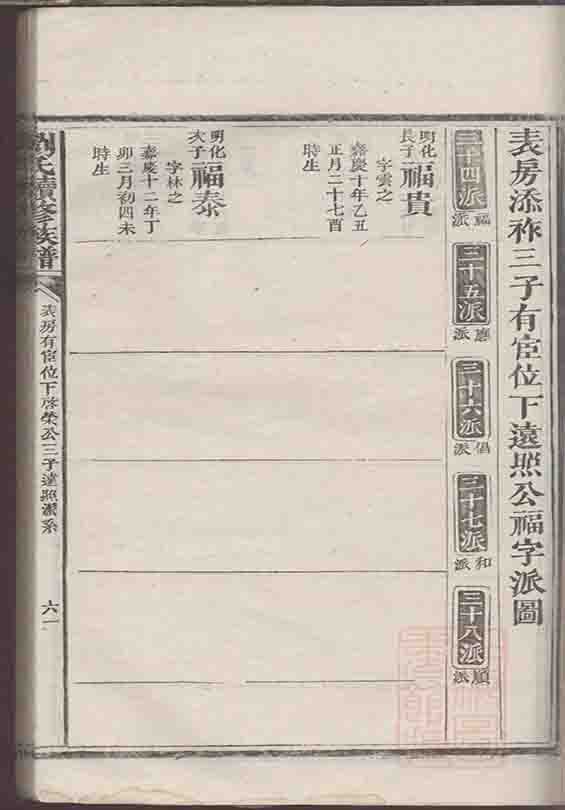 表房添祚三子有宦位下遠照公福字派圖
三十四派
福派
三十五派
應派
三十六派
倡派
三十七派
和派
三十八派
順派
明化
長子
福貴
字雲之
嘉慶十年乙丑
正月二十七酉
時生
明化
次子
福泰
字林之
嘉慶十二年丁
卯三月初四未
時生
劉氏續修族譜
表房有宦位下啓榮公三子遠照派系
六一